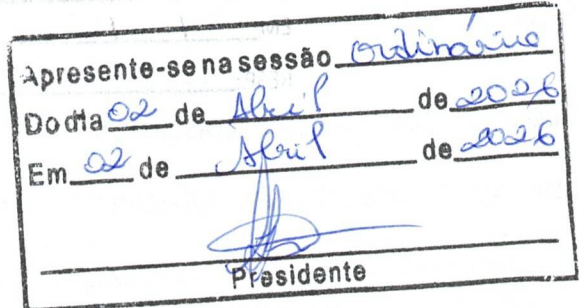 Apresente-se na sessão ordinário
Do dia 02 de Abril de 2026
Em 02 de Abril de 2026
Presidente